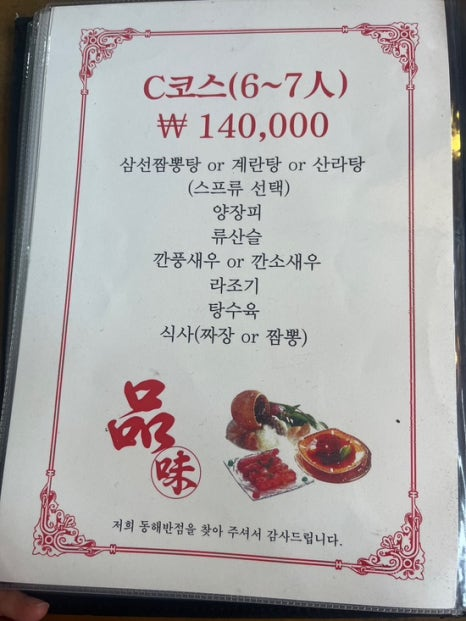 C코스(6~7人)
₩ 140,000
삼선짬뽕탕 or 계란탕 or 산라탕
(스프류 선택)
양장피
류산슬
깐풍새우 or 깐소새우
라조기
탕수육
식사(짜장 or 짬뽕)
品
味
저희 동해반점을 찾아 주셔서 감사드립니다.